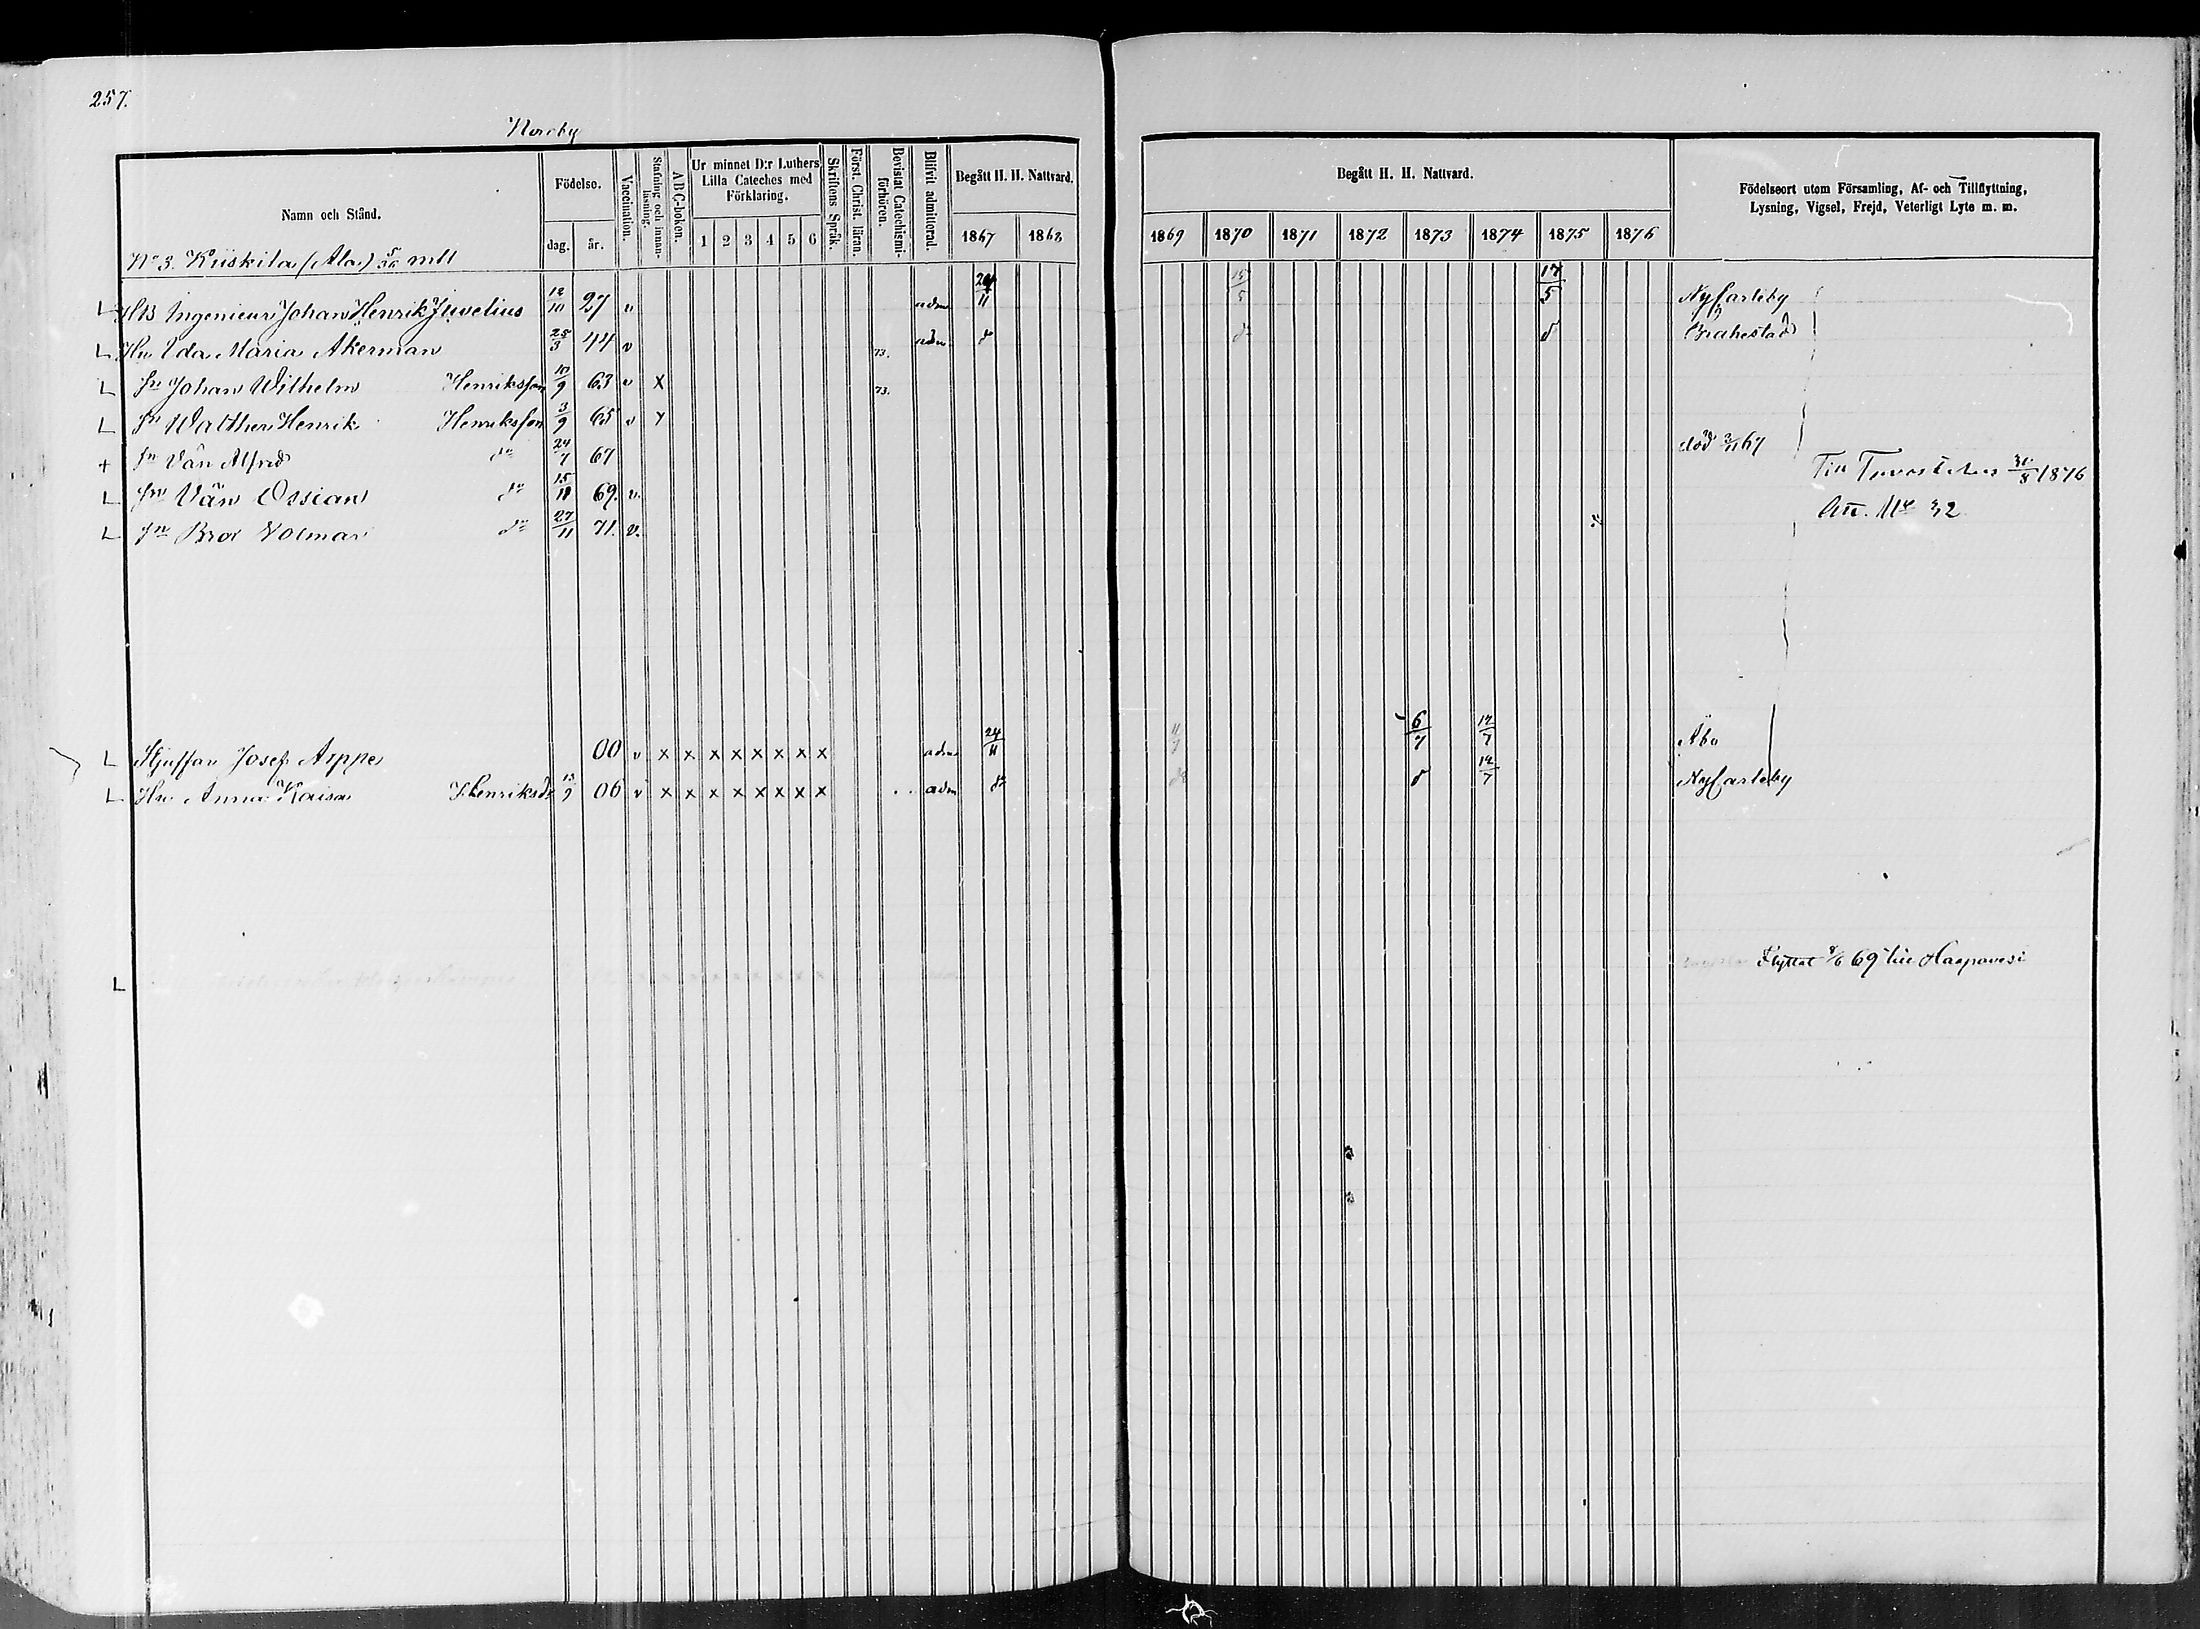 257.
Norrby
Namn och Stånd.
Födelse.
dag. år.
Vaccination.
Stafning och innan-läsning.
A B C-boken.
Ur minnet D:r Luthers
Lilla Cateches med
Förklaring.
1 2 3 4 5 6
Skriftens Språk.
Först. Christ. läran.
Bevistat Catechismi-förhören.
Blifvit admitterad.
Begått H. H. Nattvard.
1867 1868
Begått H. H. Nattvard.
1869 1870 1871 1872 1873 1874 1875 1876
Födelseort utom Församling, Af- och Tillflyttning,
Lysning, Vigsel, Frejd, Veterligt Lyte m. m.
No 3. Kiiskilä (Ala.) mtl
Ingenieur Johan Henrik Juvelius 12/10 27 v adm 24/11 15/5 17/5 NyCarleby
Hu Ida Maria Åkerman 25/3 44 v 73. adm do do do Brahestad
sn Johan Wilhelm Henriksson 10/9 63 v x 73.
sn Walther Henrik Henriksson 3/9 65 v x
+ sn Vän Alfred do 24/7 67 död 67
sn Vän Ossian do 69. v. Till Tavastehus 30/8 1876
sn Bror Volmar do 27/11 71. v. Att. No 32
Josef Arppe 00 v x x x x x x x x x adm 24/11 11/7 6/7 12/7 Åbo
Hu Anna Kaisa Henriksdr 13/9 06 v x x x x x x x x x adm do do do 12/7 NyCarleby
Flyttat 69 till Haapavesi